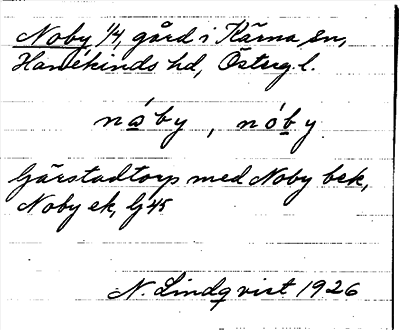 Noby 1/4, gård i Kärna sn,
Hanekinds hd, Östergl.
nȧ́by, nóby
Gärstadtorp med Noby bek,
Noby ek, Lj 45
N. Lindqvist 1926